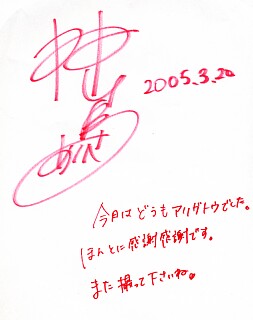 2005.3.20
今日はどうもアリガトウでした。
ほんとに感謝感謝です。
また撮って下さいね。